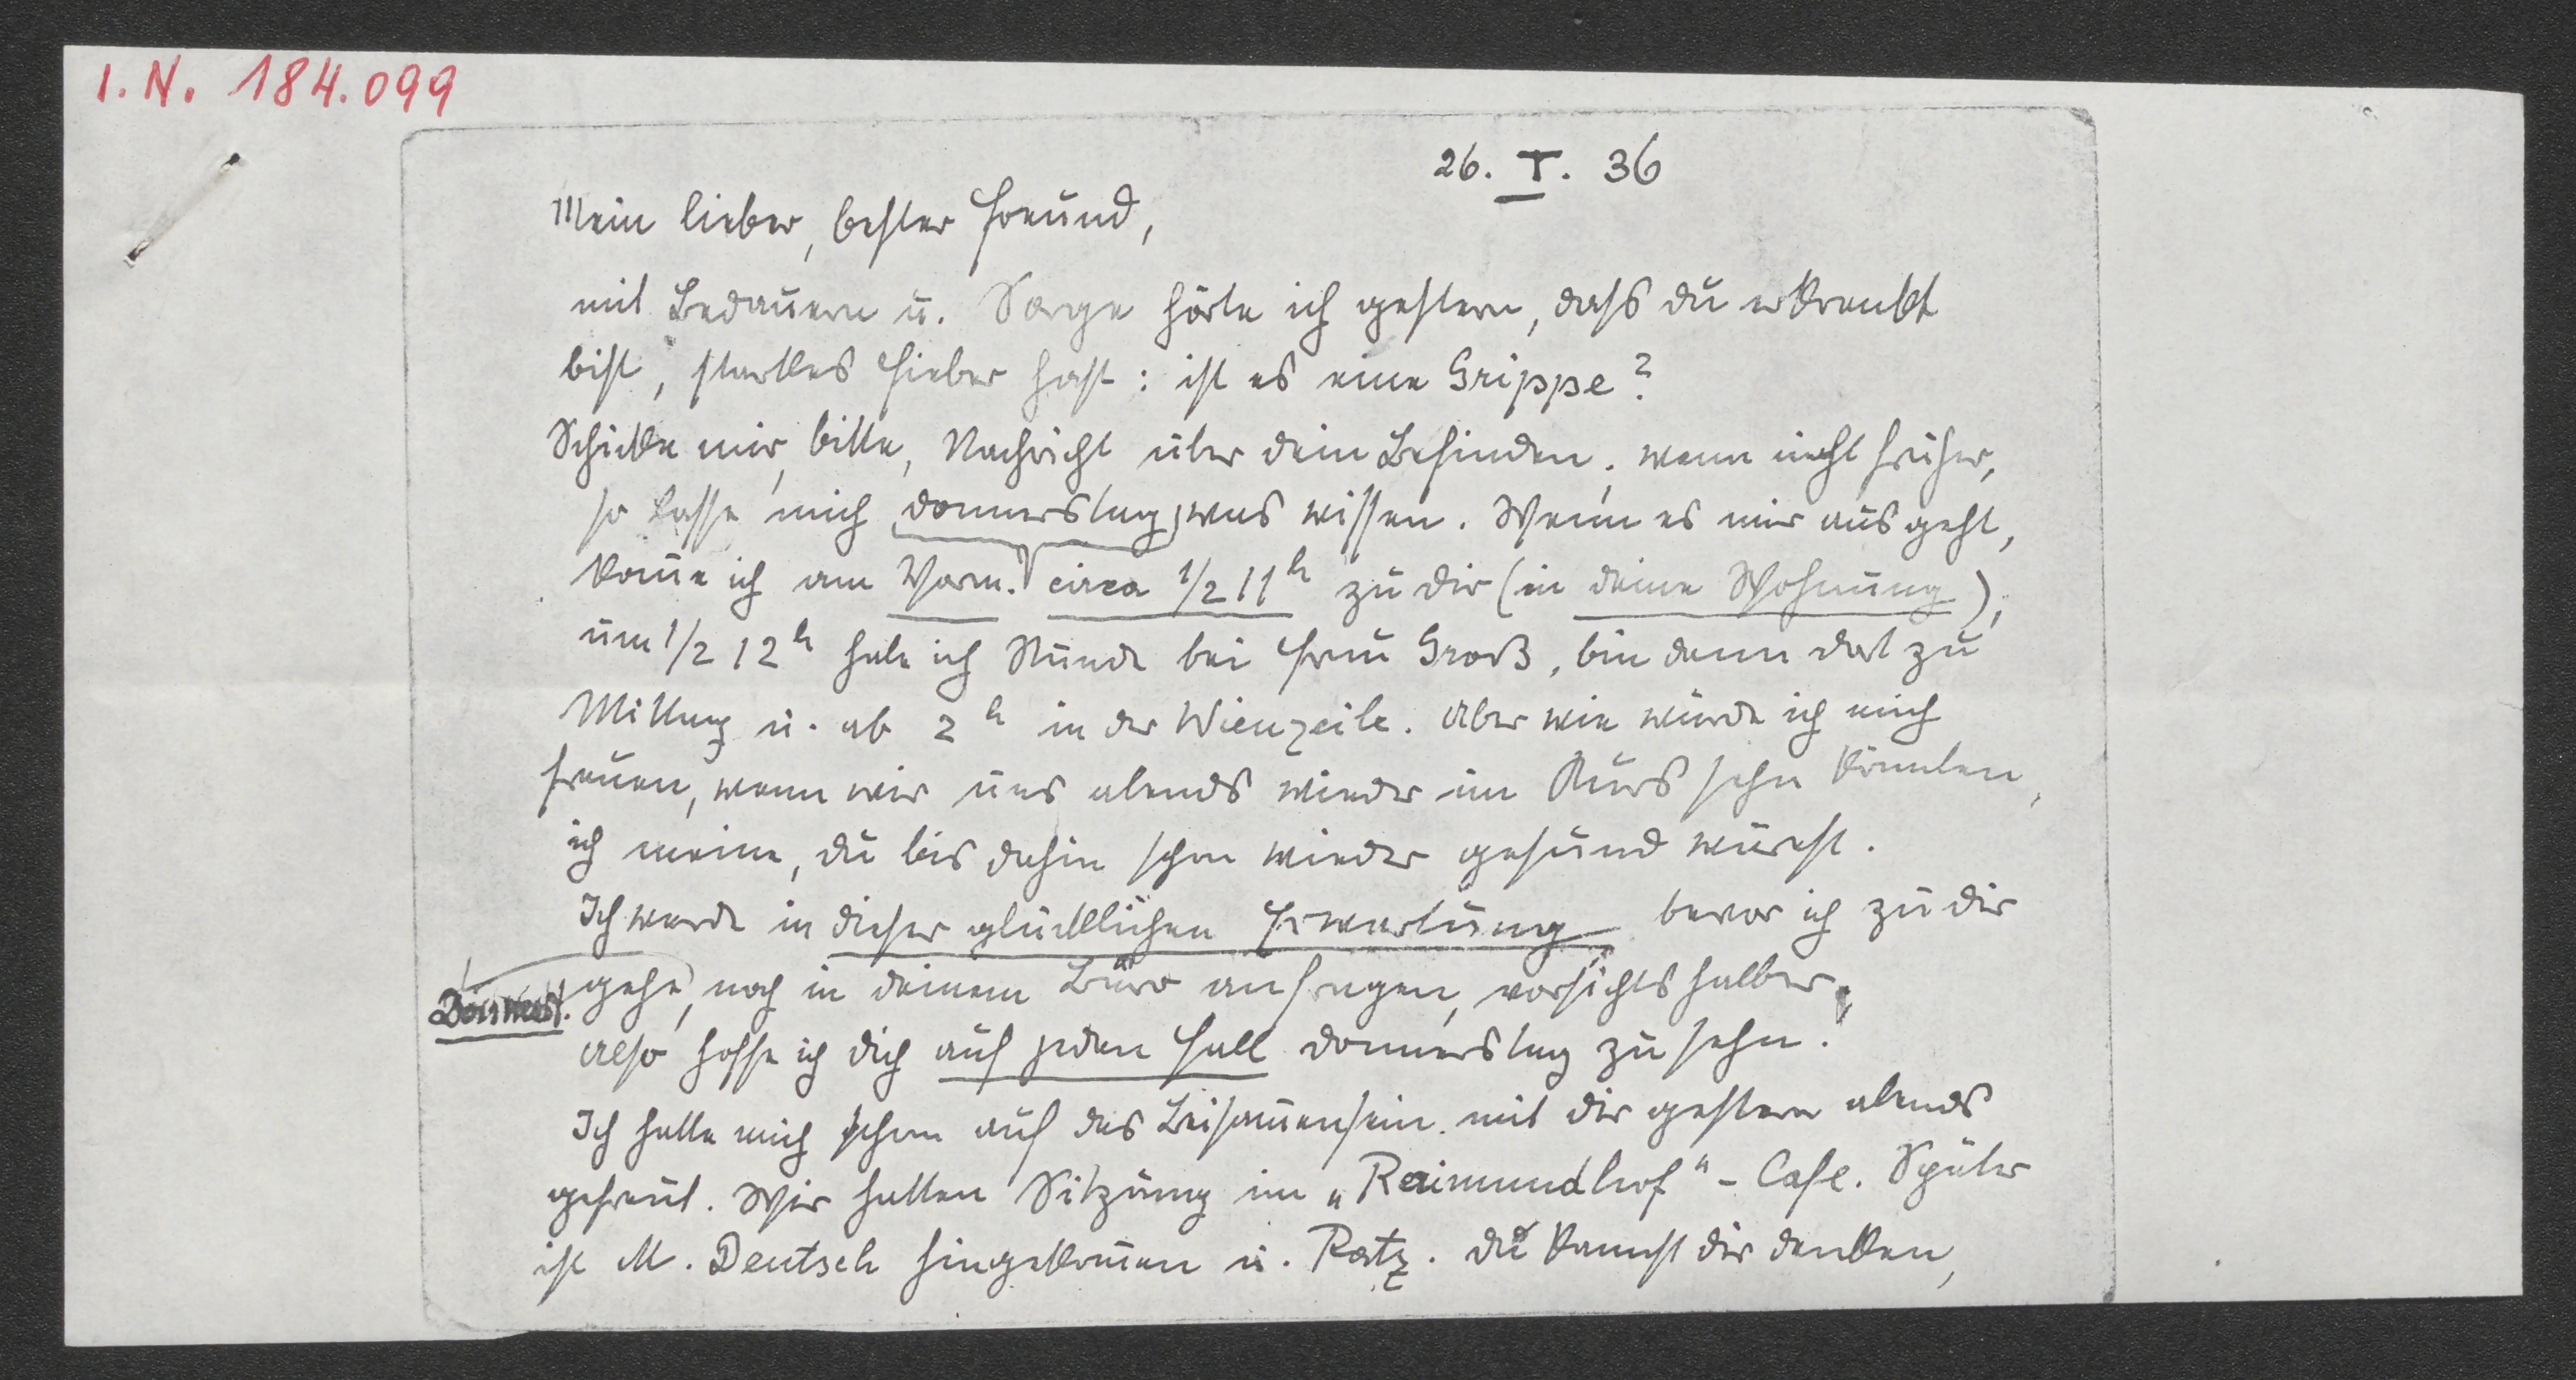 I. N. 184.099
26. I. 36
Mein lieber, bester Freund,
mit Bedauern u. Sorge hörte ich gestern, dass du erkrankt
bist, starkes Fieber hast: ist es eine Grippe?
Schicke mir, bitte, Nachricht über dein Befinden; wenn nicht früher,
so lasse mich donnerstag was wissen. Wenn es mir ausgeht,
kom̄e ich am Vorm. circa 1/2 11h zu dir (in deine Wohnung);
um 1/2 12h habe ich Stunde bei Frau Groß, bin dann dort zu
Mittag u. ab 2h in der Wienzeile. Aber wie würde ich mich
freuen, wenn wir uns abends wieder im Kurs sehn könnten,
ich meine, du bis dahin schon wieder gesund wärest.
Ich werde in dieser glücklichen Erwartung, bevor ich zu dir
gehe, noch in deinem Büro anfragen, vorsichtshalber,
Donnerst.
also hoffe ich dich auf jeden Fall donnerstag zu sehn.
Ich hatte mich schon auf das Beisam̄ensein mit dir gestern abends
gefreut. Wir hatten Sitzung im „Raimundhof"-Cafe. Später
ist M. Deutsch hingekom̄en u. Ratz. du kannst dir denken,